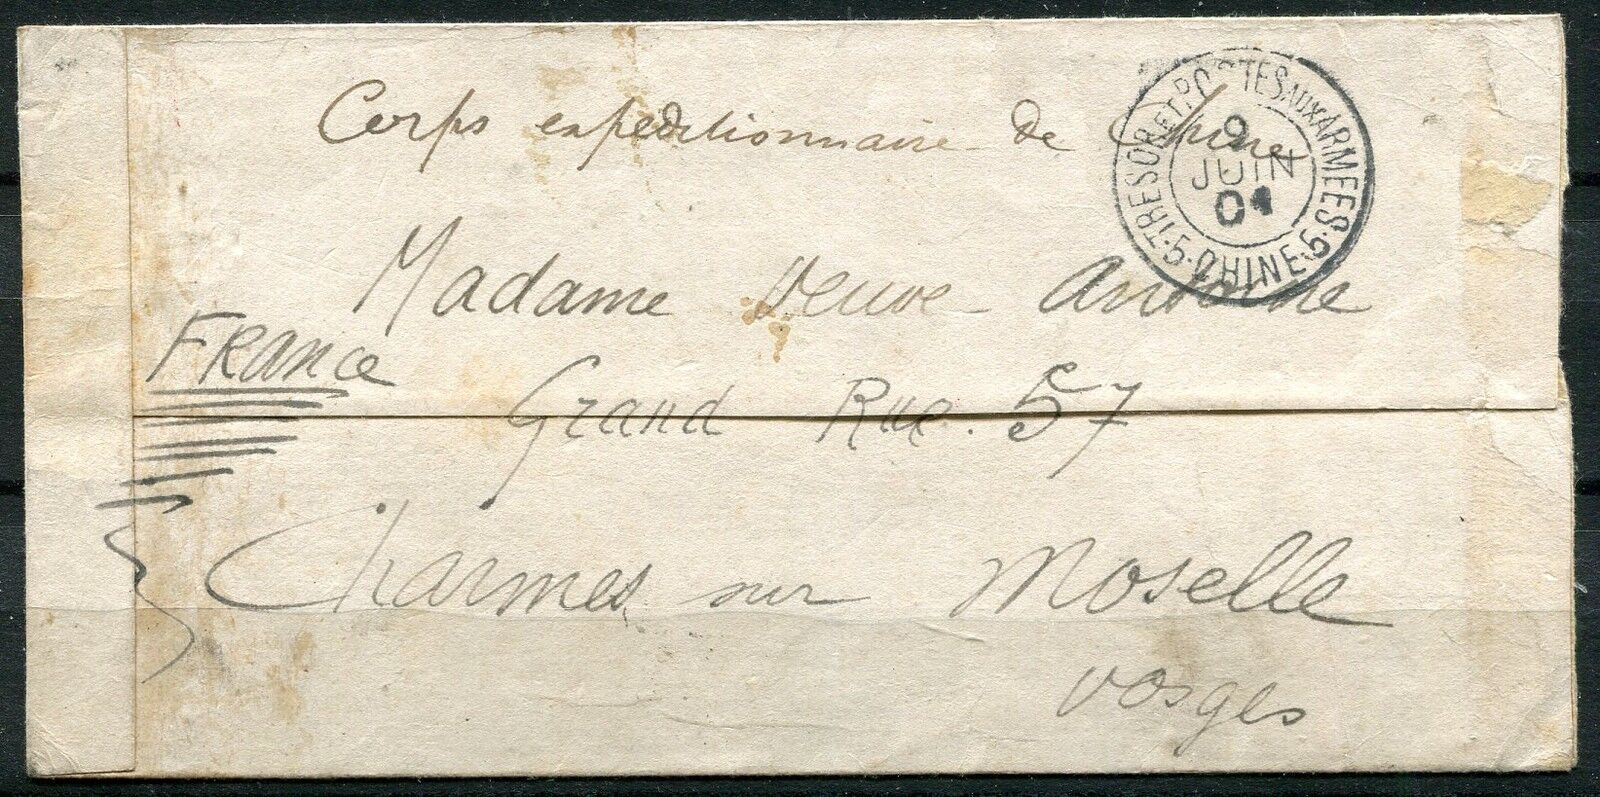 Corps expeditionnaire de Chine
TRESOR ET POSTES AUX ARMEES
9
JUIN
01
5 · CHINE · 5
Madame Veuve Antoine
FRANCE
Grand Rue. 57
Charmes sur Moselle
Vosges